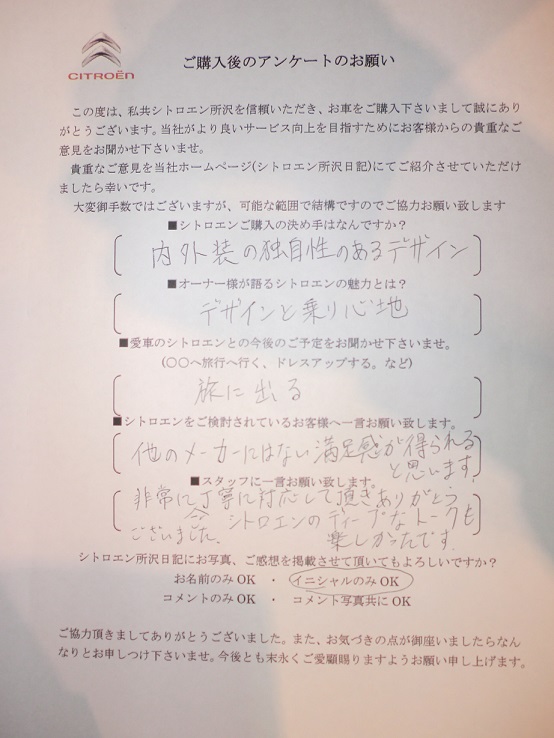 CITROËN
ご購入後のアンケートのお願い
この度は、私共シトロエン所沢を信頼いただき、お車をご購入下さいまして誠にあり
がとうございます。当社がより良いサービス向上を目指すためにお客様からの貴重なご
意見をお聞かせ下さいませ。
貴重なご意見を当社ホームページ(シトロエン所沢日記)にてご紹介させていただけ
ましたら幸いです。
大変御手数ではございますが、可能な範囲で結構ですのでご協力お願い致します
■シトロエンご購入の決め手はなんですか？
内外装の独自性のあるデザイン
■オーナー様が語るシトロエンの魅力とは？
デザインと乗り心地
■愛車のシトロエンとの今後のご予定をお聞かせ下さいませ。
(〇〇へ旅行へ行く、ドレスアップする。など)
旅に出る
■シトロエンをご検討されているお客様へ一言お願い致します。
他のメーカーにはない満足感が得られる
と思います。
■スタッフに一言お願い致します。
非常に丁寧に対応して頂きありがとう
ございました。シトロエンのディープなトークも
楽しかったです。
シトロエン所沢日記にお写真、ご感想を掲載させて頂いてもよろしいですか？
お名前のみ OK ・ イニシャルのみ OK
コメントのみ OK ・ コメント写真共に OK
ご協力頂きましてありがとうございました。また、お気づきの点が御座いましたらなん
なりとお申しつけ下さいませ。今後とも末永くご愛顧賜りますようお願い申し上げます。